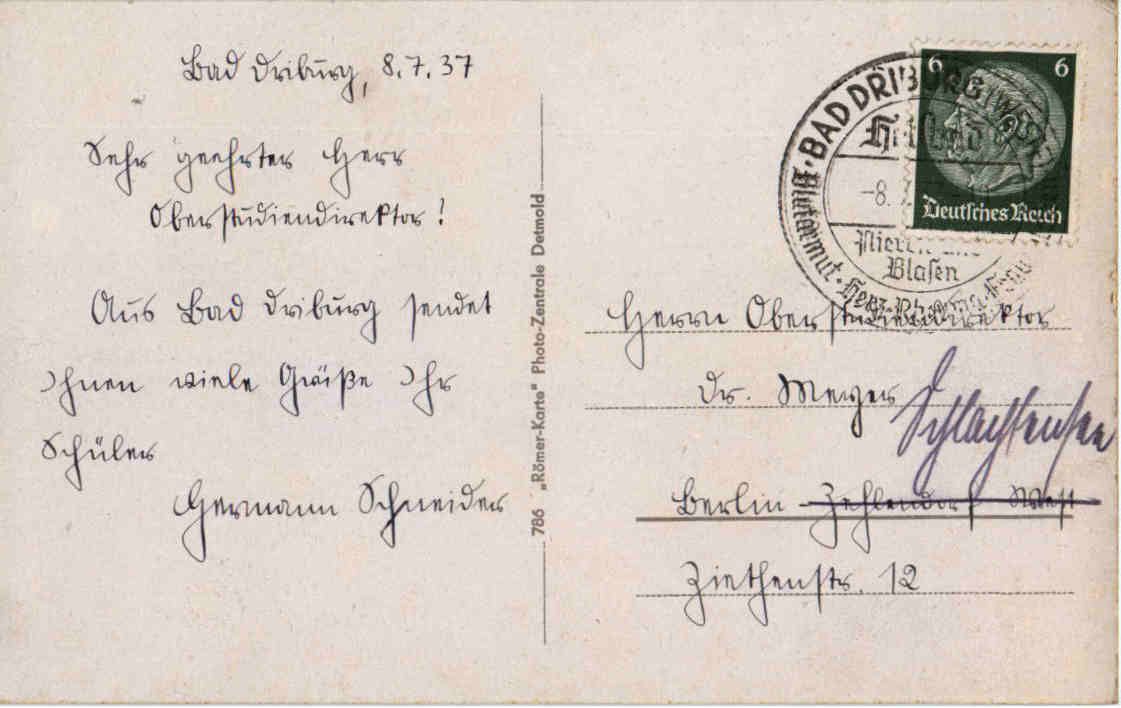 Bad Driburg, 8.7.37
Sehr geehrter Herr
Oberstudiendirektor!
Aus Bad Driburg sendet
Ihnen viele Grüße Ihr
Schüler
Hermann Schneider
786 „Römer-Karte“ Photo-Zentrale Detmold
6 6
Deutsches Reich
BAD DRIBURG (WESTF)
Heilbad
-8.7.
Nieren und
Blasen
Blutarmut · Herz
Herrn Oberstudiendirektor
Dr. Meyer
Schlachtensee
Berlin-Zehlendorf West
Ziethenstr. 12